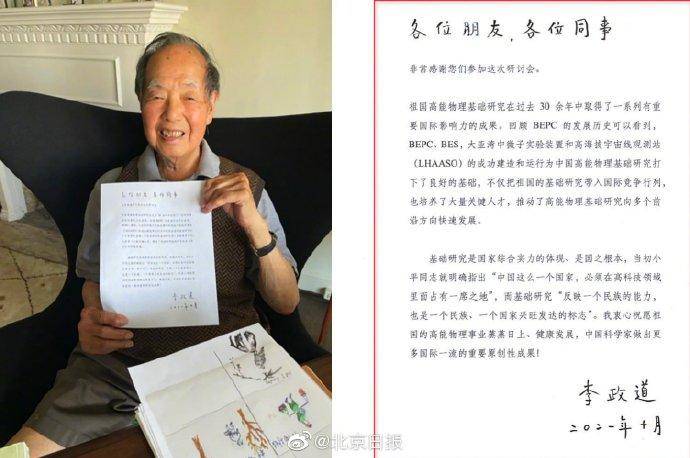 各位朋友 各位同事
李政道
二〇二一年十月
各位朋友,各位同事
非常感谢您们参加这次研讨会。
祖国高能物理基础研究在过去 30 余年中取得了一系列有重
要国际影响力的成果。回顾 BEPC 的发展历史可以看到，
BEPC、BES，大亚湾中微子实验装置和高海拔宇宙线观测站
（LHAASO）的成功建造和运行为中国高能物理基础研究打
下了良好的基础，不仅把祖国的基础研究带入国际竞争行列，
也培养了大量关键人才，推动了高能物理基础研究向多个前
沿方向快速发展。
基础研究是国家综合实力的体现、是国之根本，当初小
平同志就明确指出“中国这么一个国家，必须在高科技领域
里面占有一席之地”，而基础研究“反映一个民族的能力，
也是一个民族、一个国家兴旺发达的标志”。我衷心祝愿祖
国的高能物理事业蒸蒸日上、健康发展，中国科学家做出更
多国际一流的重要原创性成果！
李政道
二〇二一年十月
@北京日报